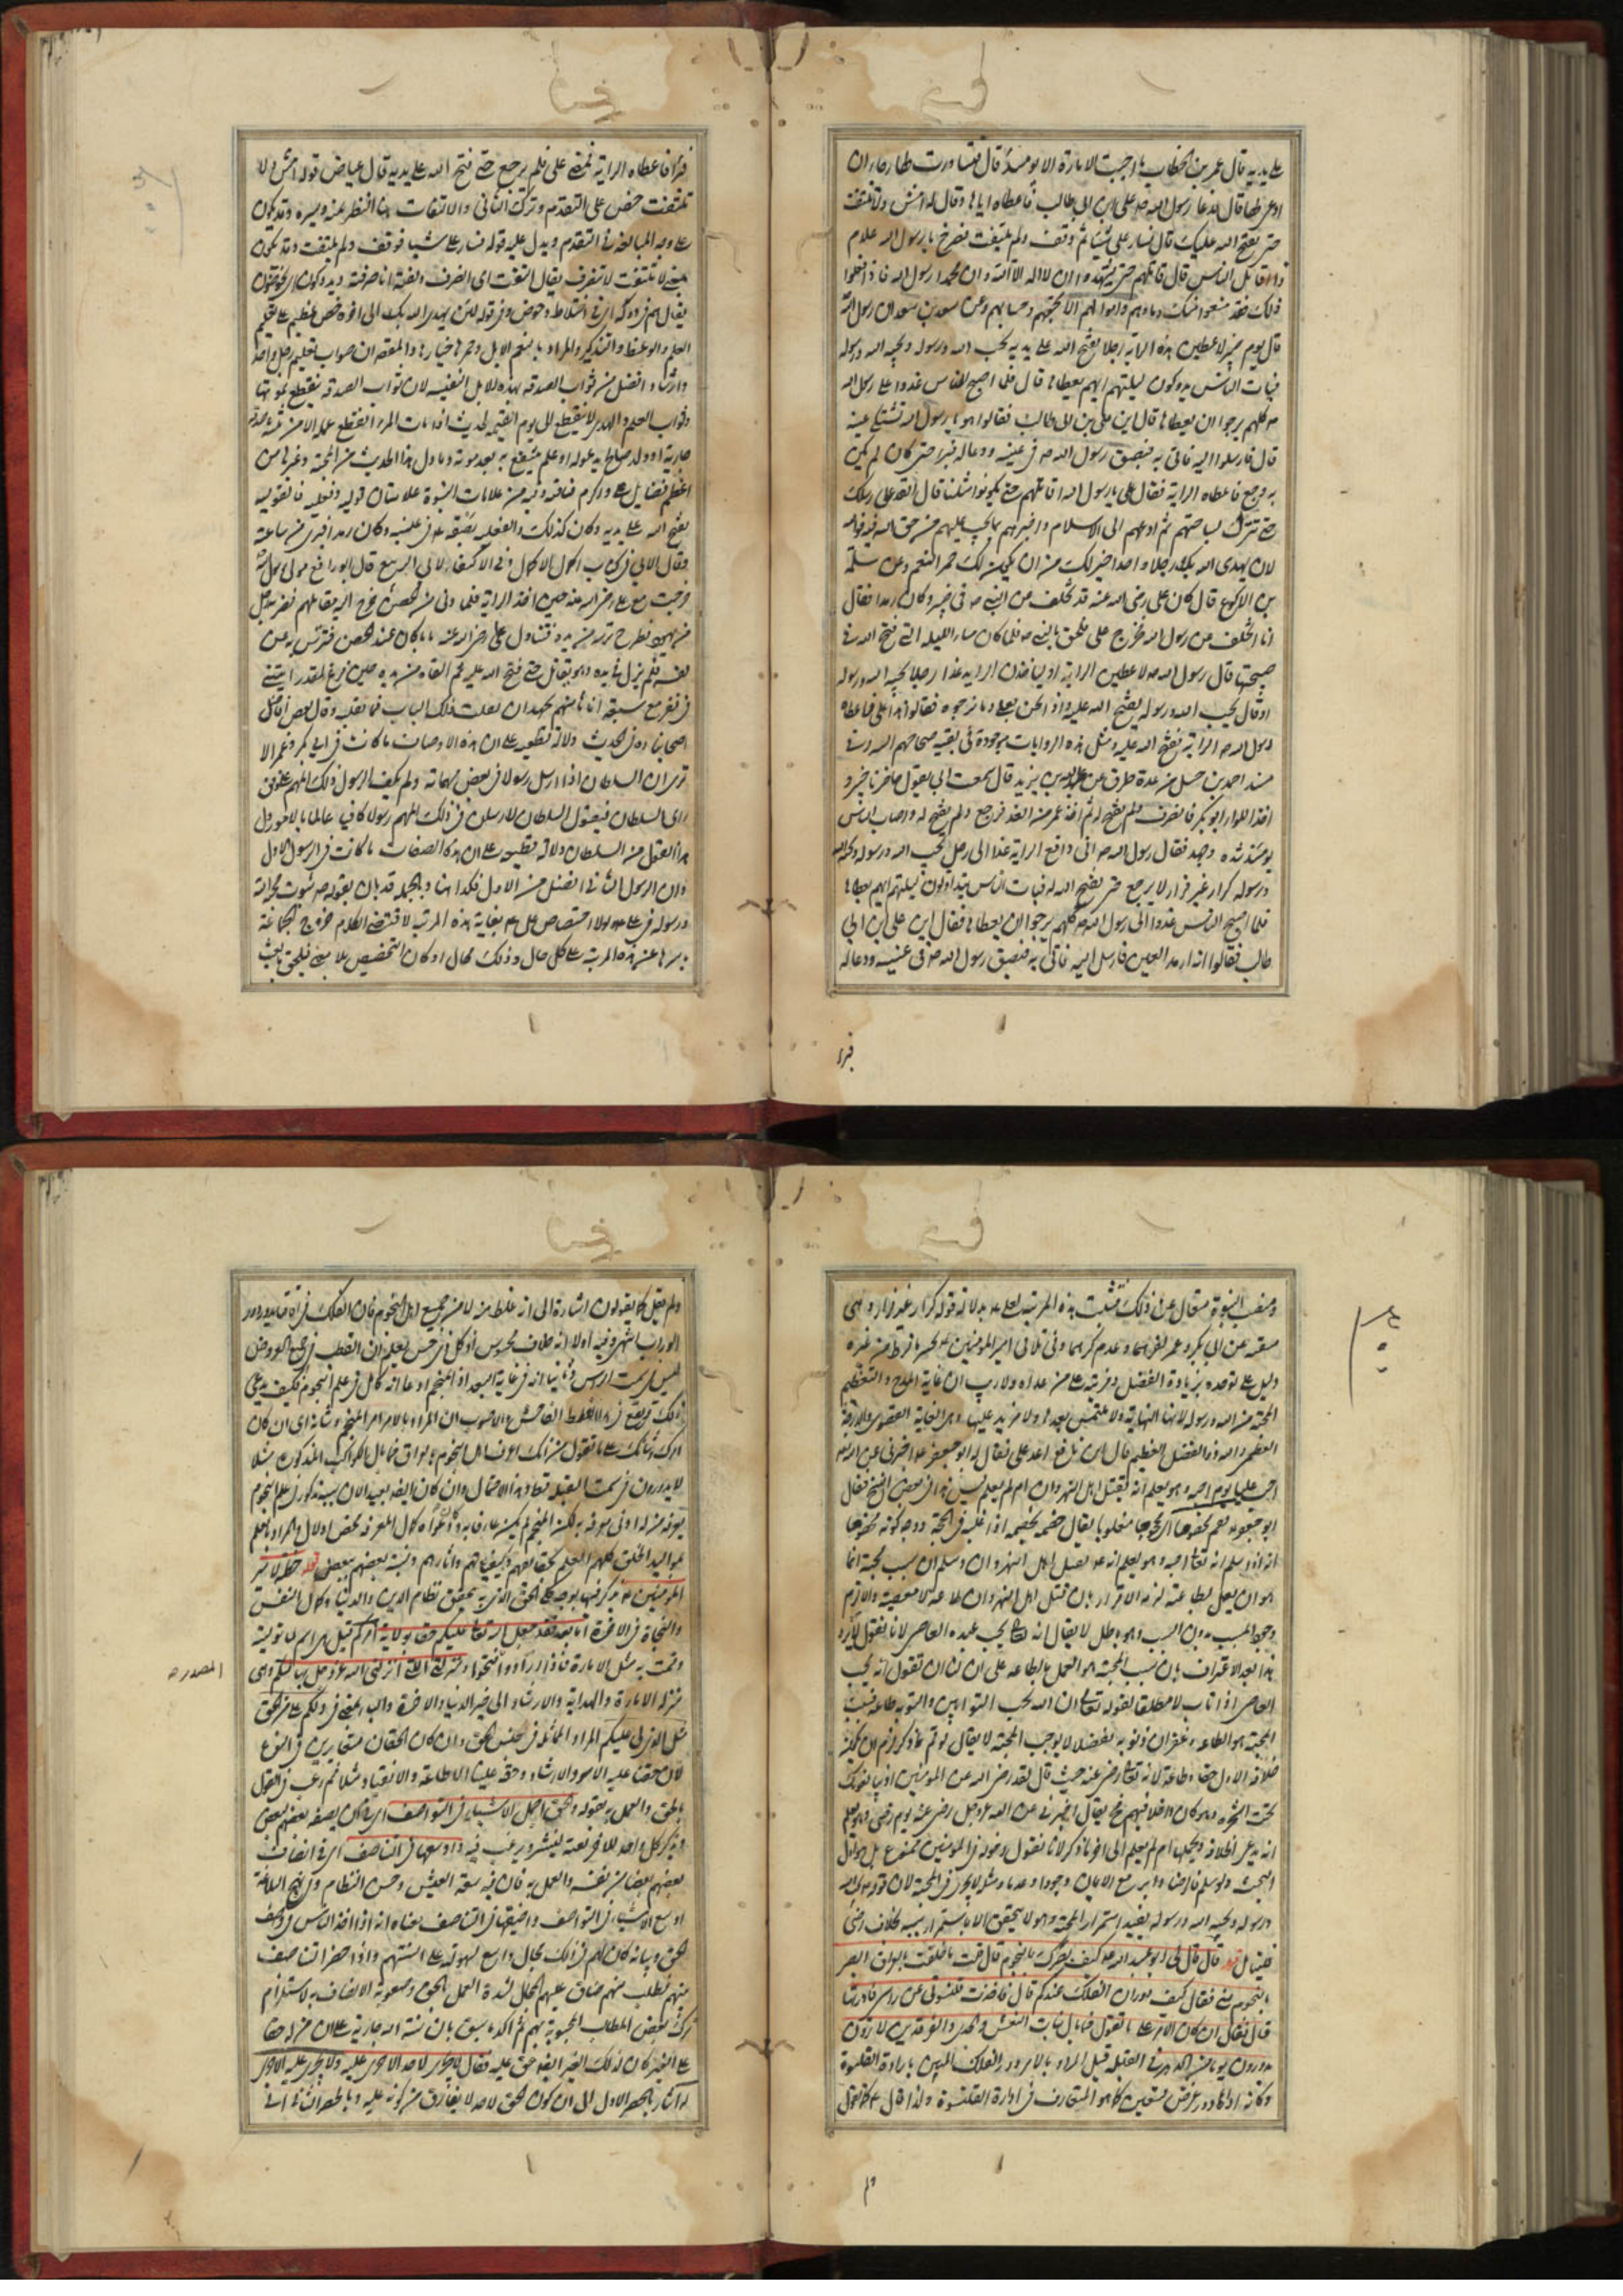 على يديه قال عمر بن الخطاب ما احببت الامارة الا يومئذ قال فتساورت لها رجاء ان
ادعى لها قال فدعا رسول الله صه على بن ابى طالب فاعطاه اياها وقال له امش ولا تلتفت
حتى يفتح الله عليك قال فسار على شيئا ثم وقف ولم يلتفت فصرخ يا رسول الله علام
ذا اقاتل الناس قال قاتلهم حتى يشهدوا ان لا اله الا الله وان محمدا رسول الله فاذا فعلوا
ذلك فقد منعوا منك دماءهم واموالهم الا بحقها وحسابهم وعن سعد بن سعد ان رسول الله
قال يوم خيبر لاعطين هذه الراية رجلا يفتح الله على يديه يحب الله ورسوله ويحبه الله ورسوله
فبات الناس يدوكون ليلتهم ايهم يعطاها قال فلما اصبح الناس غدوا على رسول الله
صه كلهم يرجوا ان يعطاها قال اين على بن ابى طالب فقالوا هو يا رسول الله تشتكى عينه
قال فارسلوا اليه فاتى به فبصق رسول الله صه فى عينيه ودعا له فبرأ حتى كان لم يكن
به وجع فاعطاه الراية فقال على يا رسول الله اقاتلهم حتى يكونوا مثلنا قال انفذ على رسلك
حتى تنزل بساحتهم ثم ادعهم الى الاسلام واخبرهم بما يجب عليهم من حق الله فيه فوالله
لان يهدى الله بك رجلا واحدا خير لك من ان يكون لك حمر النعم وعن سلمة
بن الاكوع قال كان على رضى الله عنه قد تخلف عن النبى صه فى خيبر وكان رمدا فقال
انا اتخلف عن رسول الله فخرج على فلحق بالنبى صه فلما كان مساء الليلة التى فتح الله فى
صبيحتها قال رسول الله صه لاعطين الراية او لياخذن الراية غدا رجل يحبه الله ورسوله
او قال يحب الله ورسوله يفتح الله عليه واذا نحن بعلى وما نرجوه فقالوا هذا على فاعطاه
رسول الله صه الراية ففتح الله عليه ومثل هذه الروايات موجودة فى بقية صحاحهم السته وفى
مسند احمد بن حنبل من عدة طرق عن عبد الله بن بريد قال سمعت ابى يقول حاضرنا خيبر و
اخذ اللواء ابو بكر فانصرف ولم يفتح له ثم اخذ عمر من الغد فرجع ولم يفتح له واصاب الناس
يومئذ شدة وجهد فقال رسول الله صه انى دافع الراية غدا الى رجل يحب الله ورسوله ويحبه الله
ورسوله كرار غير فرار لا يرجع حتى يفتح الله له فبات الناس يتداولون ليلتهم ايهم يعطاها
فلما اصبح الناس غدوا الى رسول الله صه كلهم يرجوا ان يعطاها فقال اين على بن ابى
طالب فقالوا انه ارمد العين فارسل اليه فاتى به فبصق رسول الله صه فى عينيه ودعا له
فبرا
فبرأ فاعطاه الراية فمضى على فلم يرجع حتى فتح الله على يديه قال عياض قوله امش ولا
تلتفت حض على التقدم وترك التانى والالتفات هنا النظر يمنة ويسرة وقد يكون
على وجه المبالغة فى التقدم ويدل عليه قوله فسار على شيئا فوقف ولم يلتفت وقد يكون
معنى لا تلتفت لا تنصرف يقال التفت اى انصرف ولفته انا صرفته ويدوكون اى يخوضون
يقال هم فى دوكة اى فى اختلاط وخوض وفى قوله لئن يهدى الله بك الى اخره حض عظيم على تعليم
العلم والوعظ والتذكير والمراد بالنعم الابل وحمرها خيارها والمقصد ان صواب تعليم رجل واحد
وارشاده افضل من ثواب الصدقة بهذه الابل النفيسة لان ثواب الصدقة ينقطع بموتها
وثواب العلم والهدى لا ينقطع الى يوم القيمة لحديث اذا مات المرء انقطع عمله الا من ثلثة صدقة
جارية او ولد صالح يدعو له او علم ينتفع به بعد موته وما دل هذا الحديث من المحبة وغيرها من
اعظم فضايل على واكرم مناقبه وفيه من علامات النبوة علامتان قوليه وفعليه فالقوليه
يفتح الله على يديه وكان كذلك والفعليه بصقه فى عينيه وكان رمدا فبرئ من ساعته
وقال الابى فى كتاب اكمال الاكمال وفى الاكتفاء لابى الربيع قال ابو رافع مولى رسول الله
خرجت مع على رضى الله عنه حين اخذ الراية فلما دنى من الحصن خرج اليه مقاتلهم فضربه رجل
من يهود فطرح ترسه من يده فتناول على رضى الله عنه بابا كان عند الحصن فترس به عن
نفسه فلم يزل فى يده وهو يقاتل حتى فتح الله عليه ثم القاه من يده حين فرغ لقد رايتنى
فى نفر مع سبعة انا ثامنهم نجهد ان نقلب ذلك الباب فما نقلبه وقال بعض افاضل
اصحابنا ره فى الحديث دلالة قطعيه على ان هذه الاوصاف ما كانت فى ابى بكر وعمر الا
ترى ان السلطان اذا ارسل رسولا فى بعض مهماته ولم يكف الرسول ذلك المهم على وفق
راى السلطان فيقول السلطان لارسلن فى ذلك المهم رسولا كافيا عالما بالامور دل
هذا القول من السلطان دلالة قطعيه على ان هذه الصفات ما كانت فى الرسول الاول
وان الرسول الثانى افضل من الاول فكذا هنا وبالجملة قد بان بقوله صه ثبوت محبة الله
ورسوله فى على ولولا اختصاص على بغاية هذه المرتبة لاقتضى الكلام خروج الجماعة
باسرها عن هذه المرتبة على كل حال وذلك محال او كان التخصيص بلا معنى فيلحق بالعبث
ومنصب النبوة متعال عن ذلك فثبت هذه المرتبة لعلى بدلالة قوله كرار غير فرار وهى
منتفية عن ابى بكر وعمر لفرارهما وعدم كرهما وفى تلافى امير المؤمنين بخيبر ما فرط من غيره
دليل على توحده بزيادة الفضل ومزيته على من عداه ولا ريب ان غاية المدح والتعظيم
المحبة من الله ورسوله لانها النهاية ولا ملتمس بعدها ولا مزيد عليها وهى الغاية القصوى والدرجة
العظمى والله ذو الفضل العظيم قال ابن نافع اعد على فقال له ابو جعفر اخبرنى عن الله
احب عليا يوم احبه وهو يعلم انه يقتل اهل النهروان ام لم يعلم ليس هذا فى بعض النسخ فقال
ابو جعفر قم مخصوما اى محجوجا مغلوبا يقال خصمه يخصمه اذا غلبه فى الحجة ووجه كونه مخصوما
انه اذا سلم انه تعالى احبه وهو يعلم انه يقتل اهل النهروان وسلم ان سبب محبته انما
هو ان يعمل بطاعته لزمه الاقرار بان قتل اهل النهروان طاعة لا معصية والا لزم
وجود المسبب بدون السبب وهو باطل لا يقال انه تعالى يحب عبده العاصى لانا نقول لا يرد
هذا بعد الاعتراف بان سبب المحبة هو العمل بالطاعة على ان لنا ان نقول انه يحب
العاصى اذا تاب لا مطلقا لقوله تعالى ان الله يحب التوابين والتوبة طاعة فسبب
المحبة هو الطاعة وغفران ذنوبه تفضلا لا يوجب المحبة لا يقال لو تم ما ذكر لزم ان يكون
خلافة الاول حقا وطاعة لانه تعالى رضى عنه حيث قال لقد رضى الله عن المؤمنين اذ يبايعونك
تحت الشجرة وهو كان داخلا فيهم فح يقال اخبرنى عن الله عز وجل رضى عنه يوم رضى وهو يعلم
انه يدعى الخلافة ويحبها ام لم يعلم الى اخر ما ذكر لانا نقول دخوله فى المؤمنين ممنوع بل هو اول
البحث ولو سلم فالرضا دائر مع الايمان وجودا وعدما ومثله لا يجرى فى المحبة لان قوله يحب الله
ورسوله ويحبه الله ورسوله يفيد استمرار المحبة وهو لا يتحقق الا باستمرار سببه بخلاف رضى
قال قال لى ابو عبد الله كيف بصرك بالنجوم قال قلت ما خلفت بالعراق ابصر
بالنجوم منى فقال كيف دوران الفلك عندكم قال فاخذت قلنسوتى عن راسى فادرتها
قال فقال ان كان الامر على ما تقول فما بال بنات النعش والجدى والفرقدين لا يرون
يدورون يوما من الدهر فى القبلة قيل المراد بالامر دور الفلك المبين بارادة القلنسوة
وكانه ادارها دور فرض لتعيين كما هو المتعارف فى ادارة القلنسوة ولذا قال كما تقول
ولم يقل كما يقولون اشارة الى انه غلط منه لا من جميع اهل النجوم فان الفلك
الدوران اشهر وفيه اولا انه خلاف محسوس اذ كل ذى حس يعلم ان القطب فى جميع العروض
ليس فى سمت الراس وثانيا انه فى غاية البعد اذ المنجم ادعى انه كامل فى علم النجوم فكيف يدعى
ذلك ويقع فى هذا الغلط الفاحش والاصوب ان المراد بالامر امر المنجم وشانه اى ان كان
امرك وشانك على ما تقول من انك اعرف اهل النجوم بالعراق فما بال الكواكب المذكورة مثلا
لا يدورون فى سمت القبلة قط وهذا الاحتمال وان كان ايضا بعيدا لان سببه مذكور فى علم النجوم
يعرفه من له ادنى معرفة به لكن المنجم لم يكن عارفا به
مواليد الخلق كلهم العلم بحقايقهم وكيفياتهم واثارهم ونسبة بعضهم ببعض قوله خطب امير
المؤمنين ذكر فيها بوجه كلى الحق الذى به يتحقق نظام الدين والدنيا وكمال النفس
والنجاة فى الاخرة اما بعد فقد جعل الله تعالى عليكم حقا بولاية امركم قيل هى اسم لما توليته
وقمت به مثل الامارة فاذا ارادوا المصدر فتحوا ومنزلتى التى انزلنى الله عز وجل بها منكم وهى
المصدر صه
منزلة الامارة والهداية والارشاد الى خير الدنيا والاخرة والباء بمعنى فى ولكم على من الحق
مثل الذى لى عليكم المراد المماثلة فى جنس الحق وان كان الحقان متغايرين فى النوع
لان حقنا عليه الامر والارشاد وحقه علينا الاطاعة والانقياد مثلا ثم رغب فى القول
بالحق والعمل به بقوله والحق اجمل الاشياء فى التواصف اى فى ان يصفه بعضهم لبعض
ويذكر كل واحد للاخر نعته لينشر ويرغب فيه واوسعها فى التناصف اى فى انصاف
بعضهم بعضا من نفسه والعمل به فان فيه سعة العيش وحسن النظام وفى نهج البلاغة
اوسع الاشياء فى التواصف واضيقها فى التناصف معناه انه اذا اخذ الناس فى وصف
الحق وبيانه كان لهم فى ذلك مجال واسع لسهولته على السنتهم واذا حضر التناصف
منهم فطلب منهم ضاق عليهم المجال لشدة العمل بالحق وصعوبة الانصاف به لاستلزام
ترك بعض المطالب المحبوبة لهم ثم اكد ما سبق بان سنة الله جارية على ان من له حقا
على الغير كان لذلك الغير ايضا حق عليه فقال لا يجرى لاحد الا جرى عليه ولا يجرى عليه الا جرى
له اشار بالحصر الاول الى ان كون الحق لاحد لا يفارق من كونه عليه وبالحصر الثانى الى